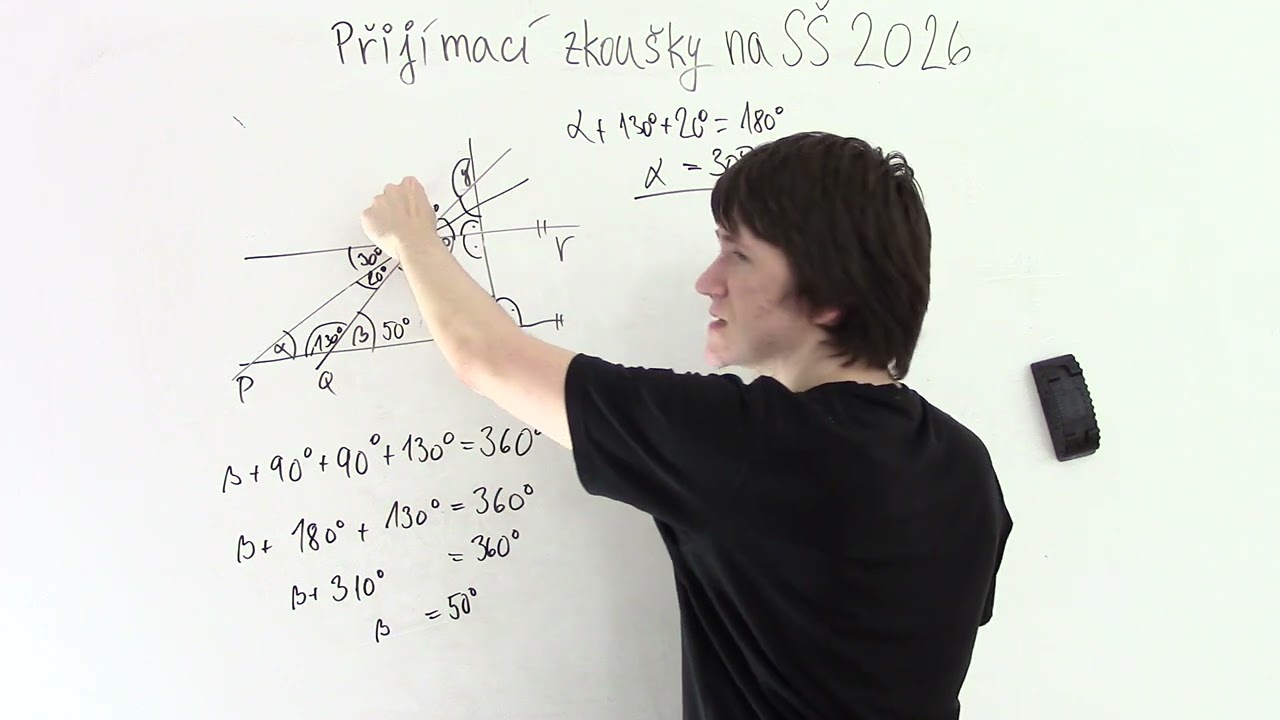 Přijímací zkoušky na SŠ 2026
α + 130° + 20° = 180°
α = 30°
γ
r
30°
20°
α 130° β 50°
P Q
β + 90° + 90° + 130° = 360°
β + 180° + 130° = 360°
β + 310° = 360°
β = 50°